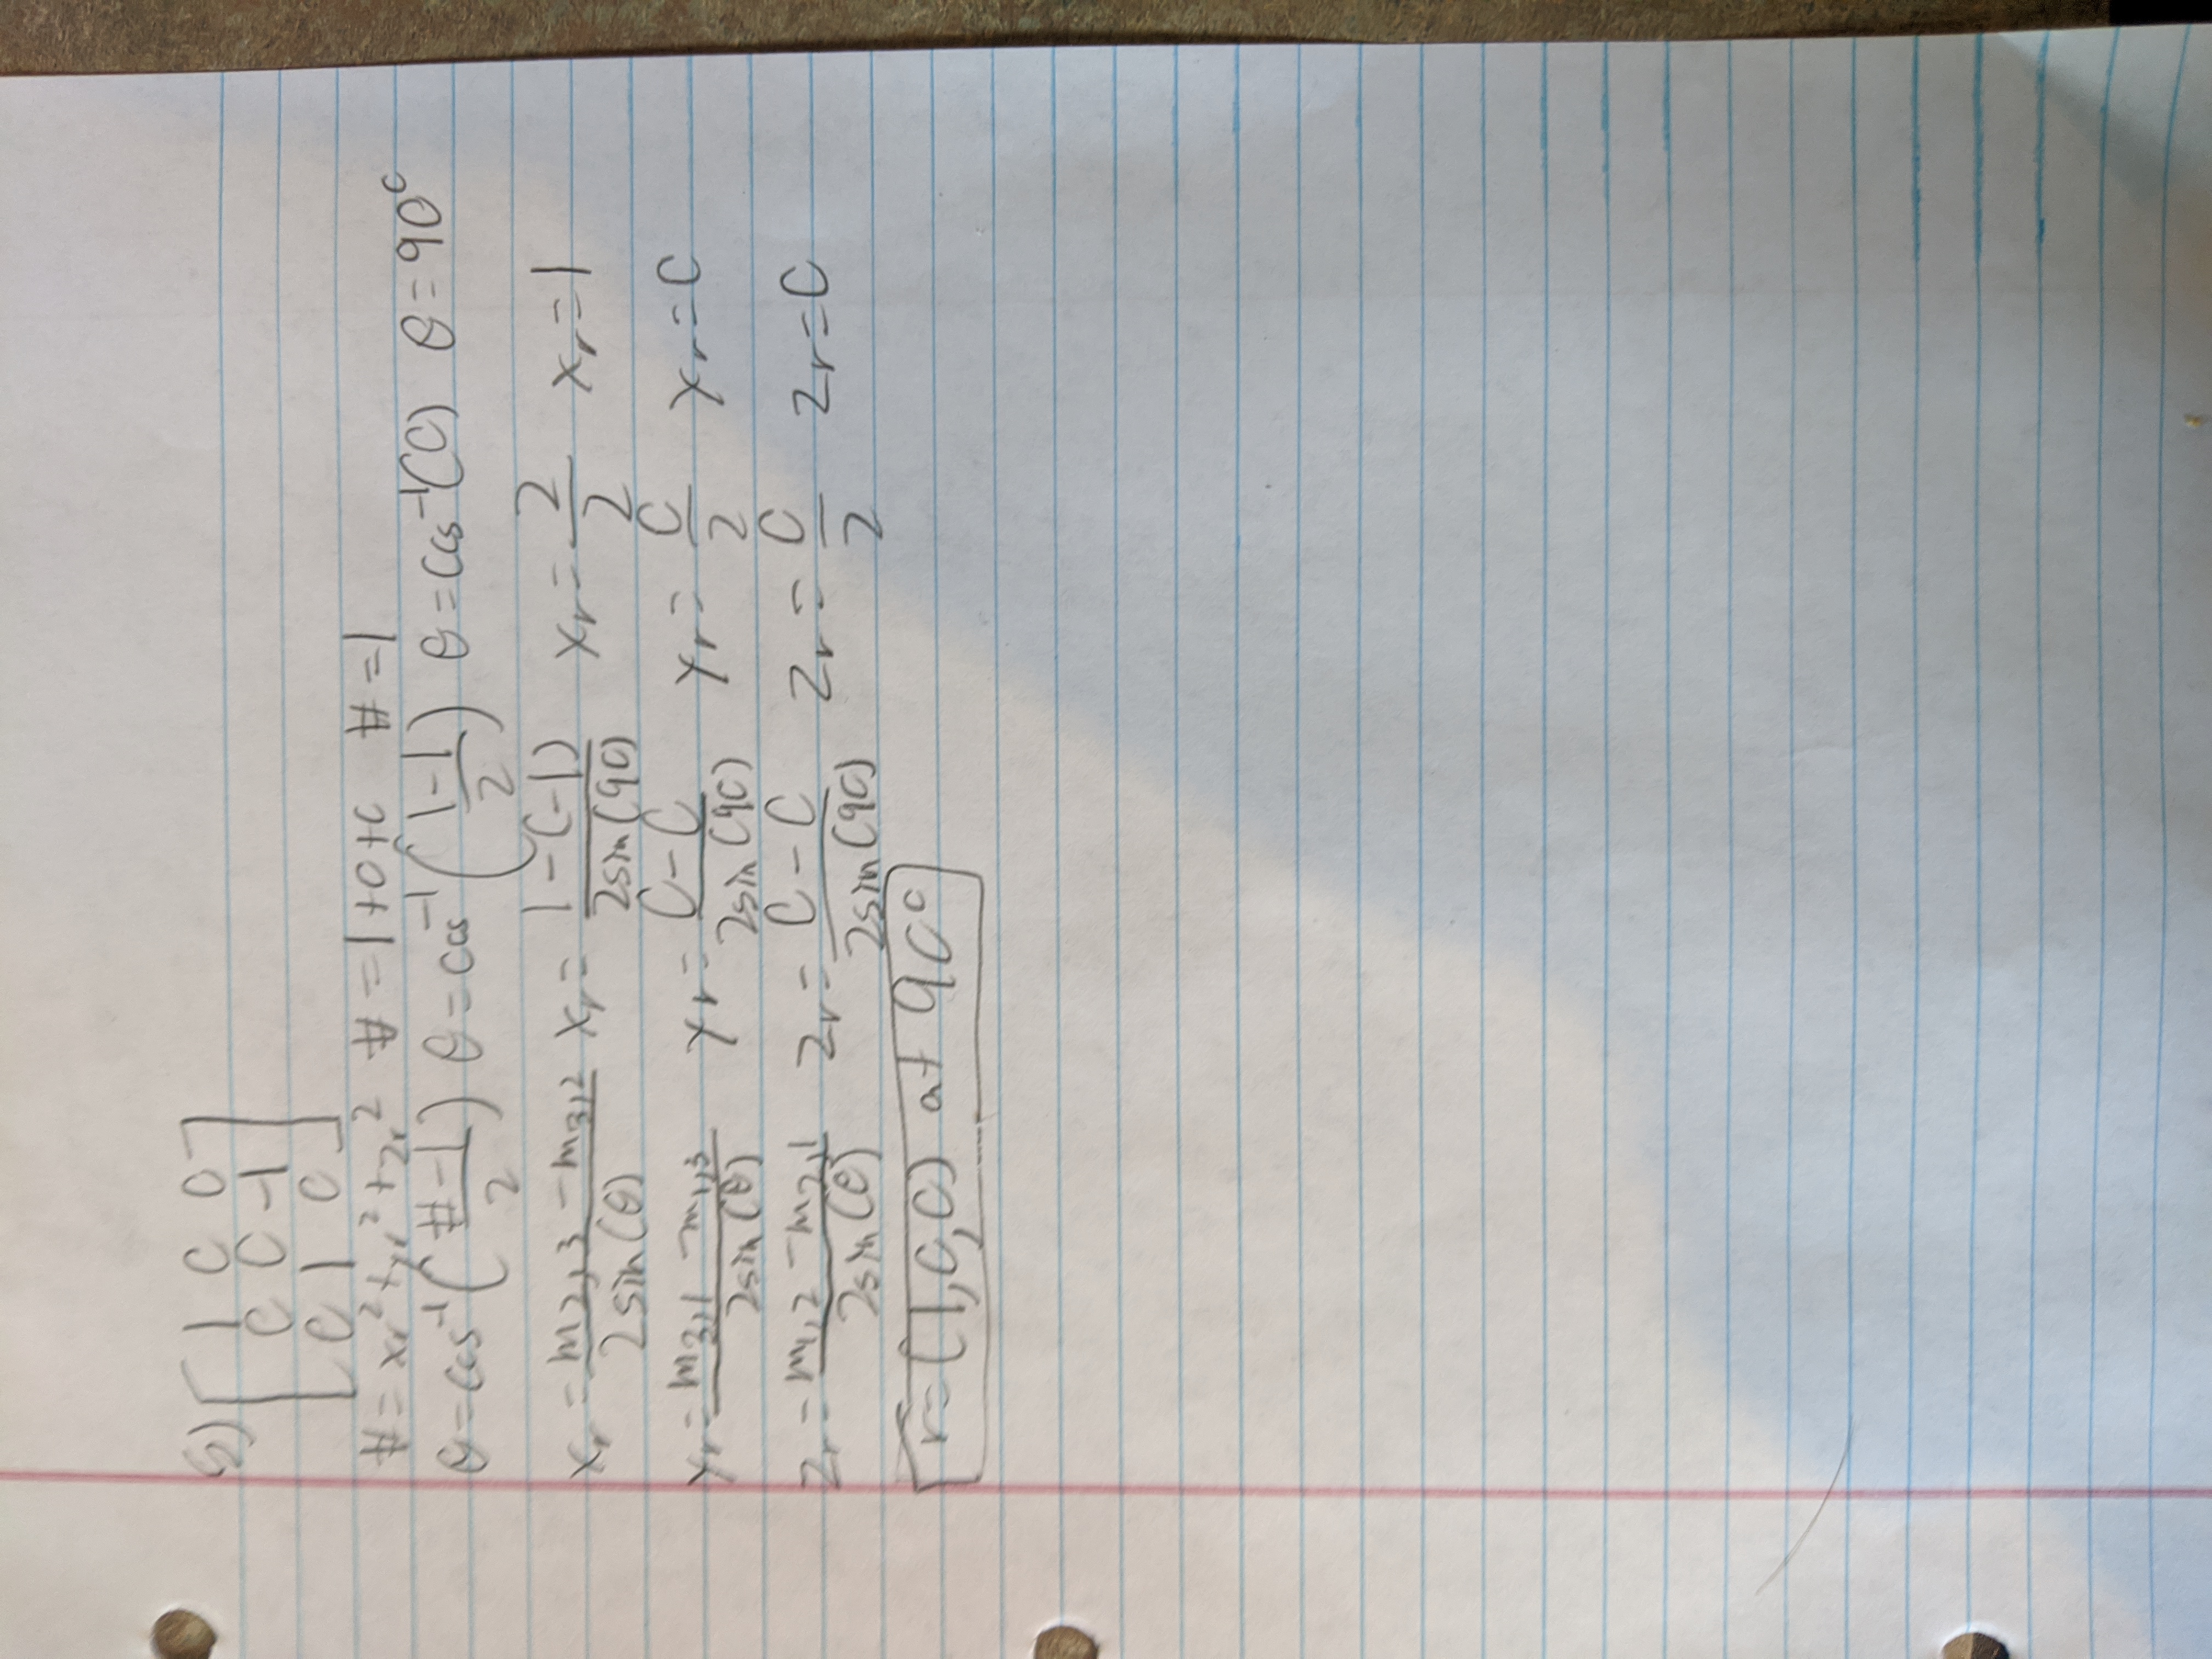 5) [ 1 0 0
0 0 -1
0 1 0 ]
# = xr² + yr² + zr² # = 1+0+0 # = 1
θ = cos⁻¹(#-1/2) θ = cos⁻¹(1-1/2) θ = cos⁻¹(0) θ = 90°
xr = m2,3 - m3,2 / 2sin(θ) xr = 1-(-1) / 2sin(90) xr = 2/2 xr = 1
yr = m3,1 - m1,3 / 2sin(θ) yr = 0-0 / 2sin(90) yr = 0/2 yr = 0
zr = m1,2 - m2,1 / 2sin(θ) zr = 0-0 / 2sin(90) zr = 0/2 zr = 0
r = (1,0,0) at 90°